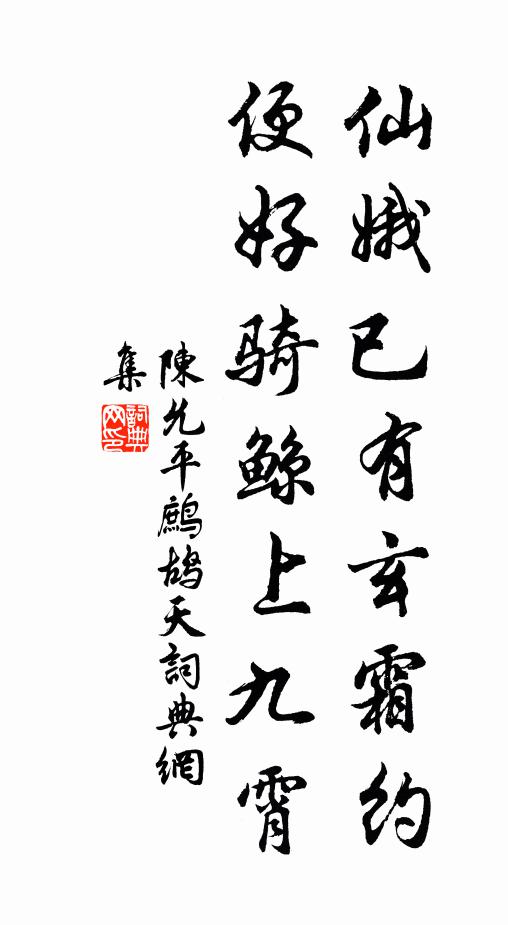 仙娥已有玄霜約
便好騎鲸上九霄
陳允平鷓鴣天詞典網
集
詞典网印